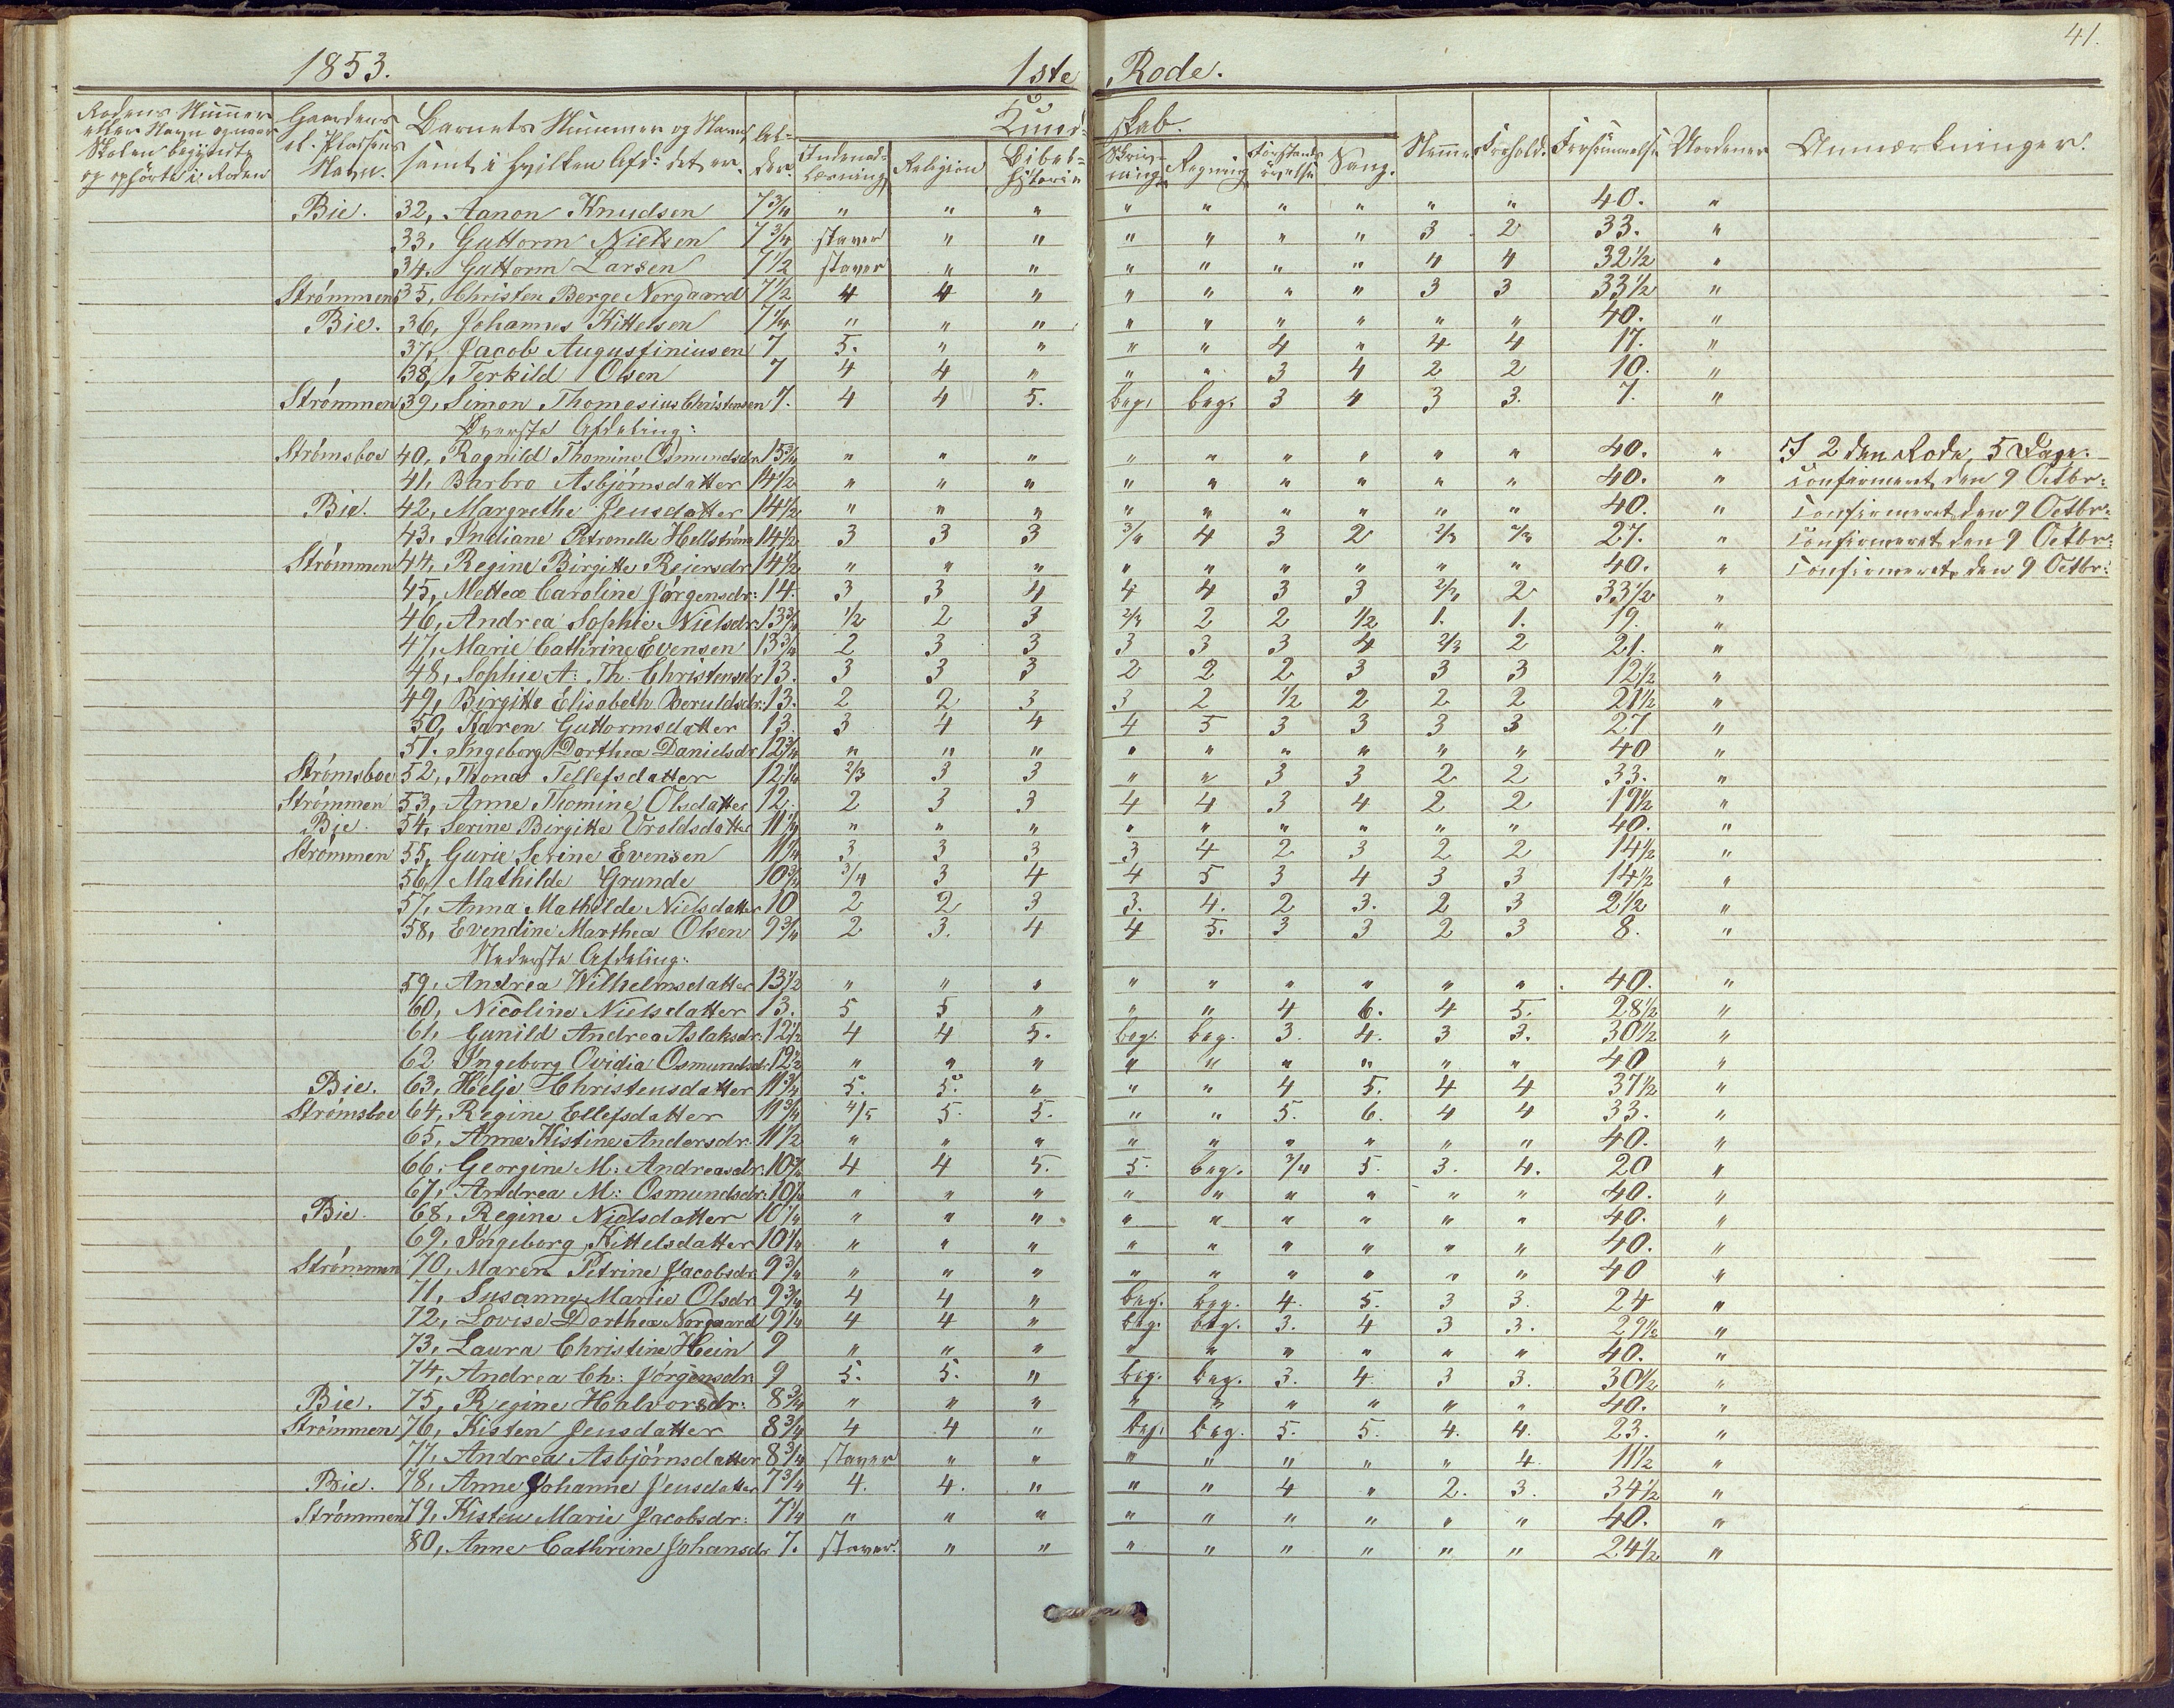 41.
1853. 1ste Rode.
Rodens Nummer eller Navn og naar Skolen begyndte og ophørte i Roden
Gaardens el. Pladsens Navn.
Barnets Nummer og Navn, samt i hvilken Afd: det er.
Al-der.
Kund-skab.
Indenad-læsning Religion Bibel-historie Skriv-ning Regning Forstands øvelse Sang. Nemme Forhold. Forsømmelse Anmærkninger.
Bie. 32, Aanon Knudsen 7 3/4 " " " " " " " " " 40. "
33, Guttorm Nielsen 7 3/4 staver " " " " " " 3 2 33. "
34. Guttorm Larsen 7 1/2 staver " " " " " " 4 4 32 1/2 "
Strømmen 35, Christen Berge Norgaard 7 1/2 4 4 " " " " " 3 3 33 1/2 "
Bie. 36, Johannes Kittelsen 7 1/4 " " " " " " " " " 40. "
37, Jacob Augustiniusen 7 5. " " " " 4 " 4 4 17. "
38, Terkild Olsen 7 4 4 " " " 3 4 2 2 10. "
Strømmen 39, Simon Thomesius Christensen 7. 4 4 5. beg. beg. 3 4 3 3. 7. "
Øverste Afdeling:
Strømsboe 40, Ragnild Thomine Osmundsdr 15 3/4 " " " " " " " " " 40. " I 2den Rode, 5 Dage.
41, Barbro Asbjørnsdatter 14 1/2 " " " " " " " " " 40. " Confirmeret den 9 Octbr:
Bie. 42, Margrethe Jensdatter 14 1/2 " " " " " " " " " 40. " Confirmeret den 9 Octbr:
43. Indiane Petronelle Hellstrøm 14 1/2 3 3 3 3/4 4 3 2 2/3 2/3 27. " Confirmeret den 9 Octbr:
Strømmen 44, Regine Birgitte Reiersdr 14 1/2 " " " " " " " " " 40. " Confirmeret den 9 Octbr:
45, Mettea Caroline Jørgensdr: 14. 3 3 4 4 4 3 3 2/3 2 33 1/2 "
46, Andrea Sophie Nielsdr 13 3/4 1/2 2 3 2/3 2 2 1/2 1. 1. 19. "
47, Marie Cathrine Evensen 13 3/4 2 3 3 3 3 3 4 2/3 2 21. "
48, Sophie A: Th: Christensdr 13. 3 3 3 2 2 2 3 3 3 12 1/2 "
49, Birgitte Elisabeth Beruldsdr: 13. 2 2 3 3 2 1/2 2 2 2 21 1/2 "
50, Karen Guttormsdatter 13 3 4 4 4 5 3 3 3 3 27 "
51. Ingeborg Dorthea Danielsdr 12 3/4 " " " " " " " " " 40 "
Strømsboe 52, Thona Tellefsdatter 12 1/4 2/3 3 3 " " 3 3 2 2 33. "
Strømmen 53, Anne Thomine Olsdatter 12. 2 3 3 4 4 3 4 2 2 19 1/2 "
Bie. 54, Serine Birgitte Uroldsdatter 11 1/4 " " " " " " " " " 40. "
Strømmen 55, Gurie Serine Evensen 11 1/4 3 3 3 3 4 2 3 2 2 14 1/2 "
56, Mathilde Grunde 10 3/4 3/4 3 4 4 5 3 4 3 3 14 1/2 "
57, Anna Mathilde Nielsdatter 10 2 2 3 3. 4. 2 3. 2 3 2 1/2 "
58, Evendine Marthea Olsen 9 3/4 2 3. 4 4 5. 3 3 2 3 8. "
Nederste Afdeling:
59, Andrea Wilhelmsdatter 13 1/2 " " " " " " " " " 40. "
60, Nicoline Nielsdatter 13. 5 5 " " " 4 6. 4 5. 28 1/2 "
61, Gunild Andrea Aslaksdr: 12 1/2 4 4 5. beg. beg. 3. 4. 3 3. 30 1/2 "
62 Ingeborg Ovidia Osmundsdr 12 1/2 " " " " " " " " " 40 "
Bie. 63, Helje Christensdatter 11 3/4 5. 5. " " " 4 5. 4 4 37 1/2 "
Strømsboe 64, Regine Ellefsdatter 11 3/4 4/5 5. 5. " " 5. 6. 4 4 33. "
65, Anne Kistine Andersdr. 11 1/2 " " " " " " " " " 40. "
66. Georgine M: Andreasdr. 10 3/4 4 4 5. 5. beg. 3/4 5. 3. 4. 20 "
67, Andrea M: Osmundsdr: 10 1/2 " " " " " " " " " 40. "
Bie. 68, Regine Nielsdatter 10 1/4 " " " " " " " " " 40. "
69, Ingeborg Kittelsdatter 10 1/4 " " " " " " " " " 40. "
Strømmen 70, Maren Petrine Jacobsdr 9 3/4 " " " " " " " " " 40 "
71, Susanne Marie Olsdr 9 3/4 4 4 " beg. beg. 4. 5. 3 3. 24 "
72, Lovise Dorthea Norgaard 9 1/4 4 4 " beg. beg. 3. 4 3 3. 29 1/2 "
73, Laura Christine Hein 9 " " " " " " " " " 40. "
74, Andrea Ch: Jørgensdr: 9 5. 5. " beg. beg. 3. 4. 3 3. 30 1/2 "
Bie. 75, Regine Halvorsdr: 8 3/4 " " " " " " " " " 40. "
Strømmen 76, Kisten Jensdatter 8 3/4 4 4 " beg. beg. 5. 5. 4. 4. 23. "
77, Andrea Asbjørnsdatter 8 3/4 staver " " " " " " " 4. 11 1/2 "
Bie. 78, Anne Johanne Jensdatter 7 3/4 4. 4. " " " 4 " 2. 3. 34 1/2 "
Strømmen 79, Kisten Marie Jacobsdr: 7 1/4 " " " " " " " " " 40. "
80, Anne Cathrine Johansdr 7. staver. " " " " " " " " 24 1/2 "